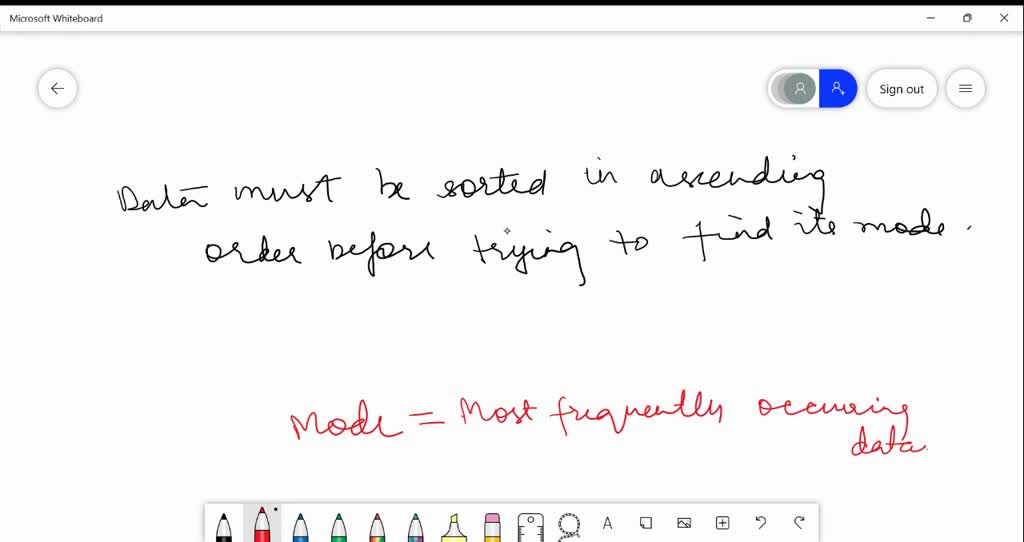 Microsoft Whiteboard
Sign out
Data must be sorted in ascending
order before trying to find its mode.
Mode = Most frequently occuring
data.
A